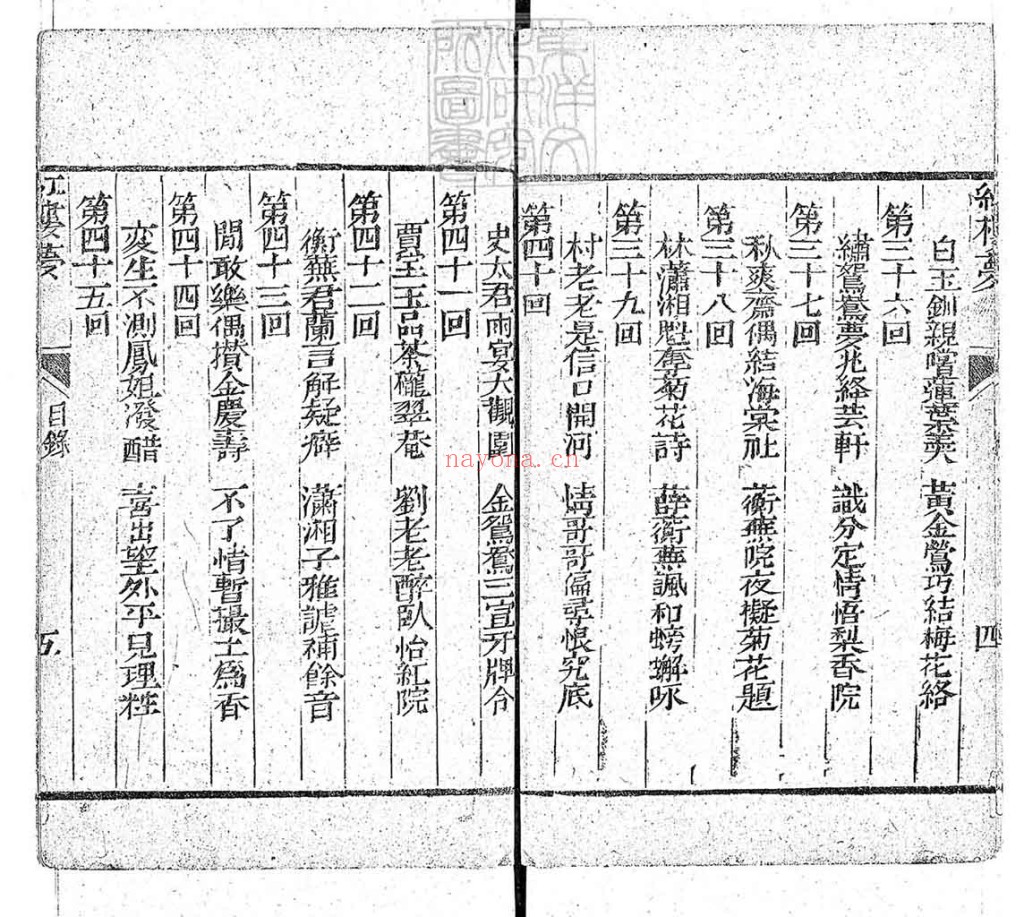 紅樓夢
四
白玉釧親嚐蓮葉羹 黃金鶯巧結梅花絡
第三十六回
繡鴛鴦夢兆絳芸軒 識分定情悟梨香院
第三十七回
秋爽齋偶結海棠社 蘅蕪院夜擬菊花題
第三十八回
林瀟湘魁奪菊花詩 薛蘅蕪諷和螃蠏咏
第三十九回
村老老是信口開河 情哥哥偏尋恨究底
第四十回
史太君兩宴大觀園 金鴛鴦三宣牙牌令
第四十一回
賈寶玉品茶櫳翠菴 劉老老醉臥怡紅院
第四十二回
蘅蕪君蘭言解疑癖 瀟湘子雅謔補餘音
第四十三回
閒取樂偶攢金慶壽 不了情暫撮土爲香
第四十四回
変生不測鳳姐潑醋 喜出望外平兒理粧
第四十五回
紅樓夢
目錄
五
nayona.cn